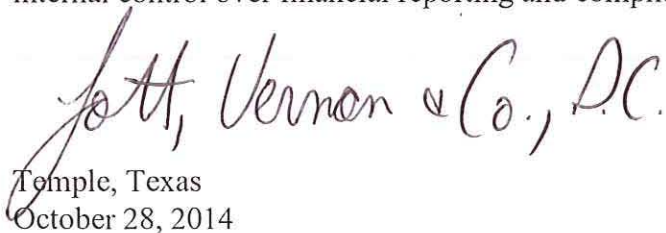 internal control over financial reporting and
Lott, Vernon & Co., P.C.
Temple, Texas
October 28, 2014